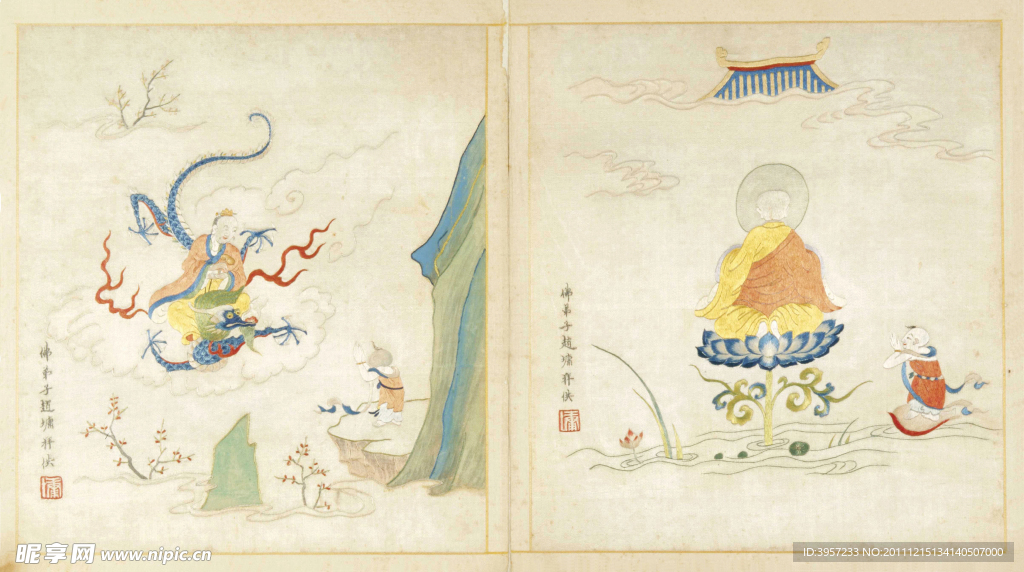 佛弟子趙墉拜供
佛弟子趙墉拜供
昵享网 www.nipic.cn
ID:3957233 NO:20111215134140507000